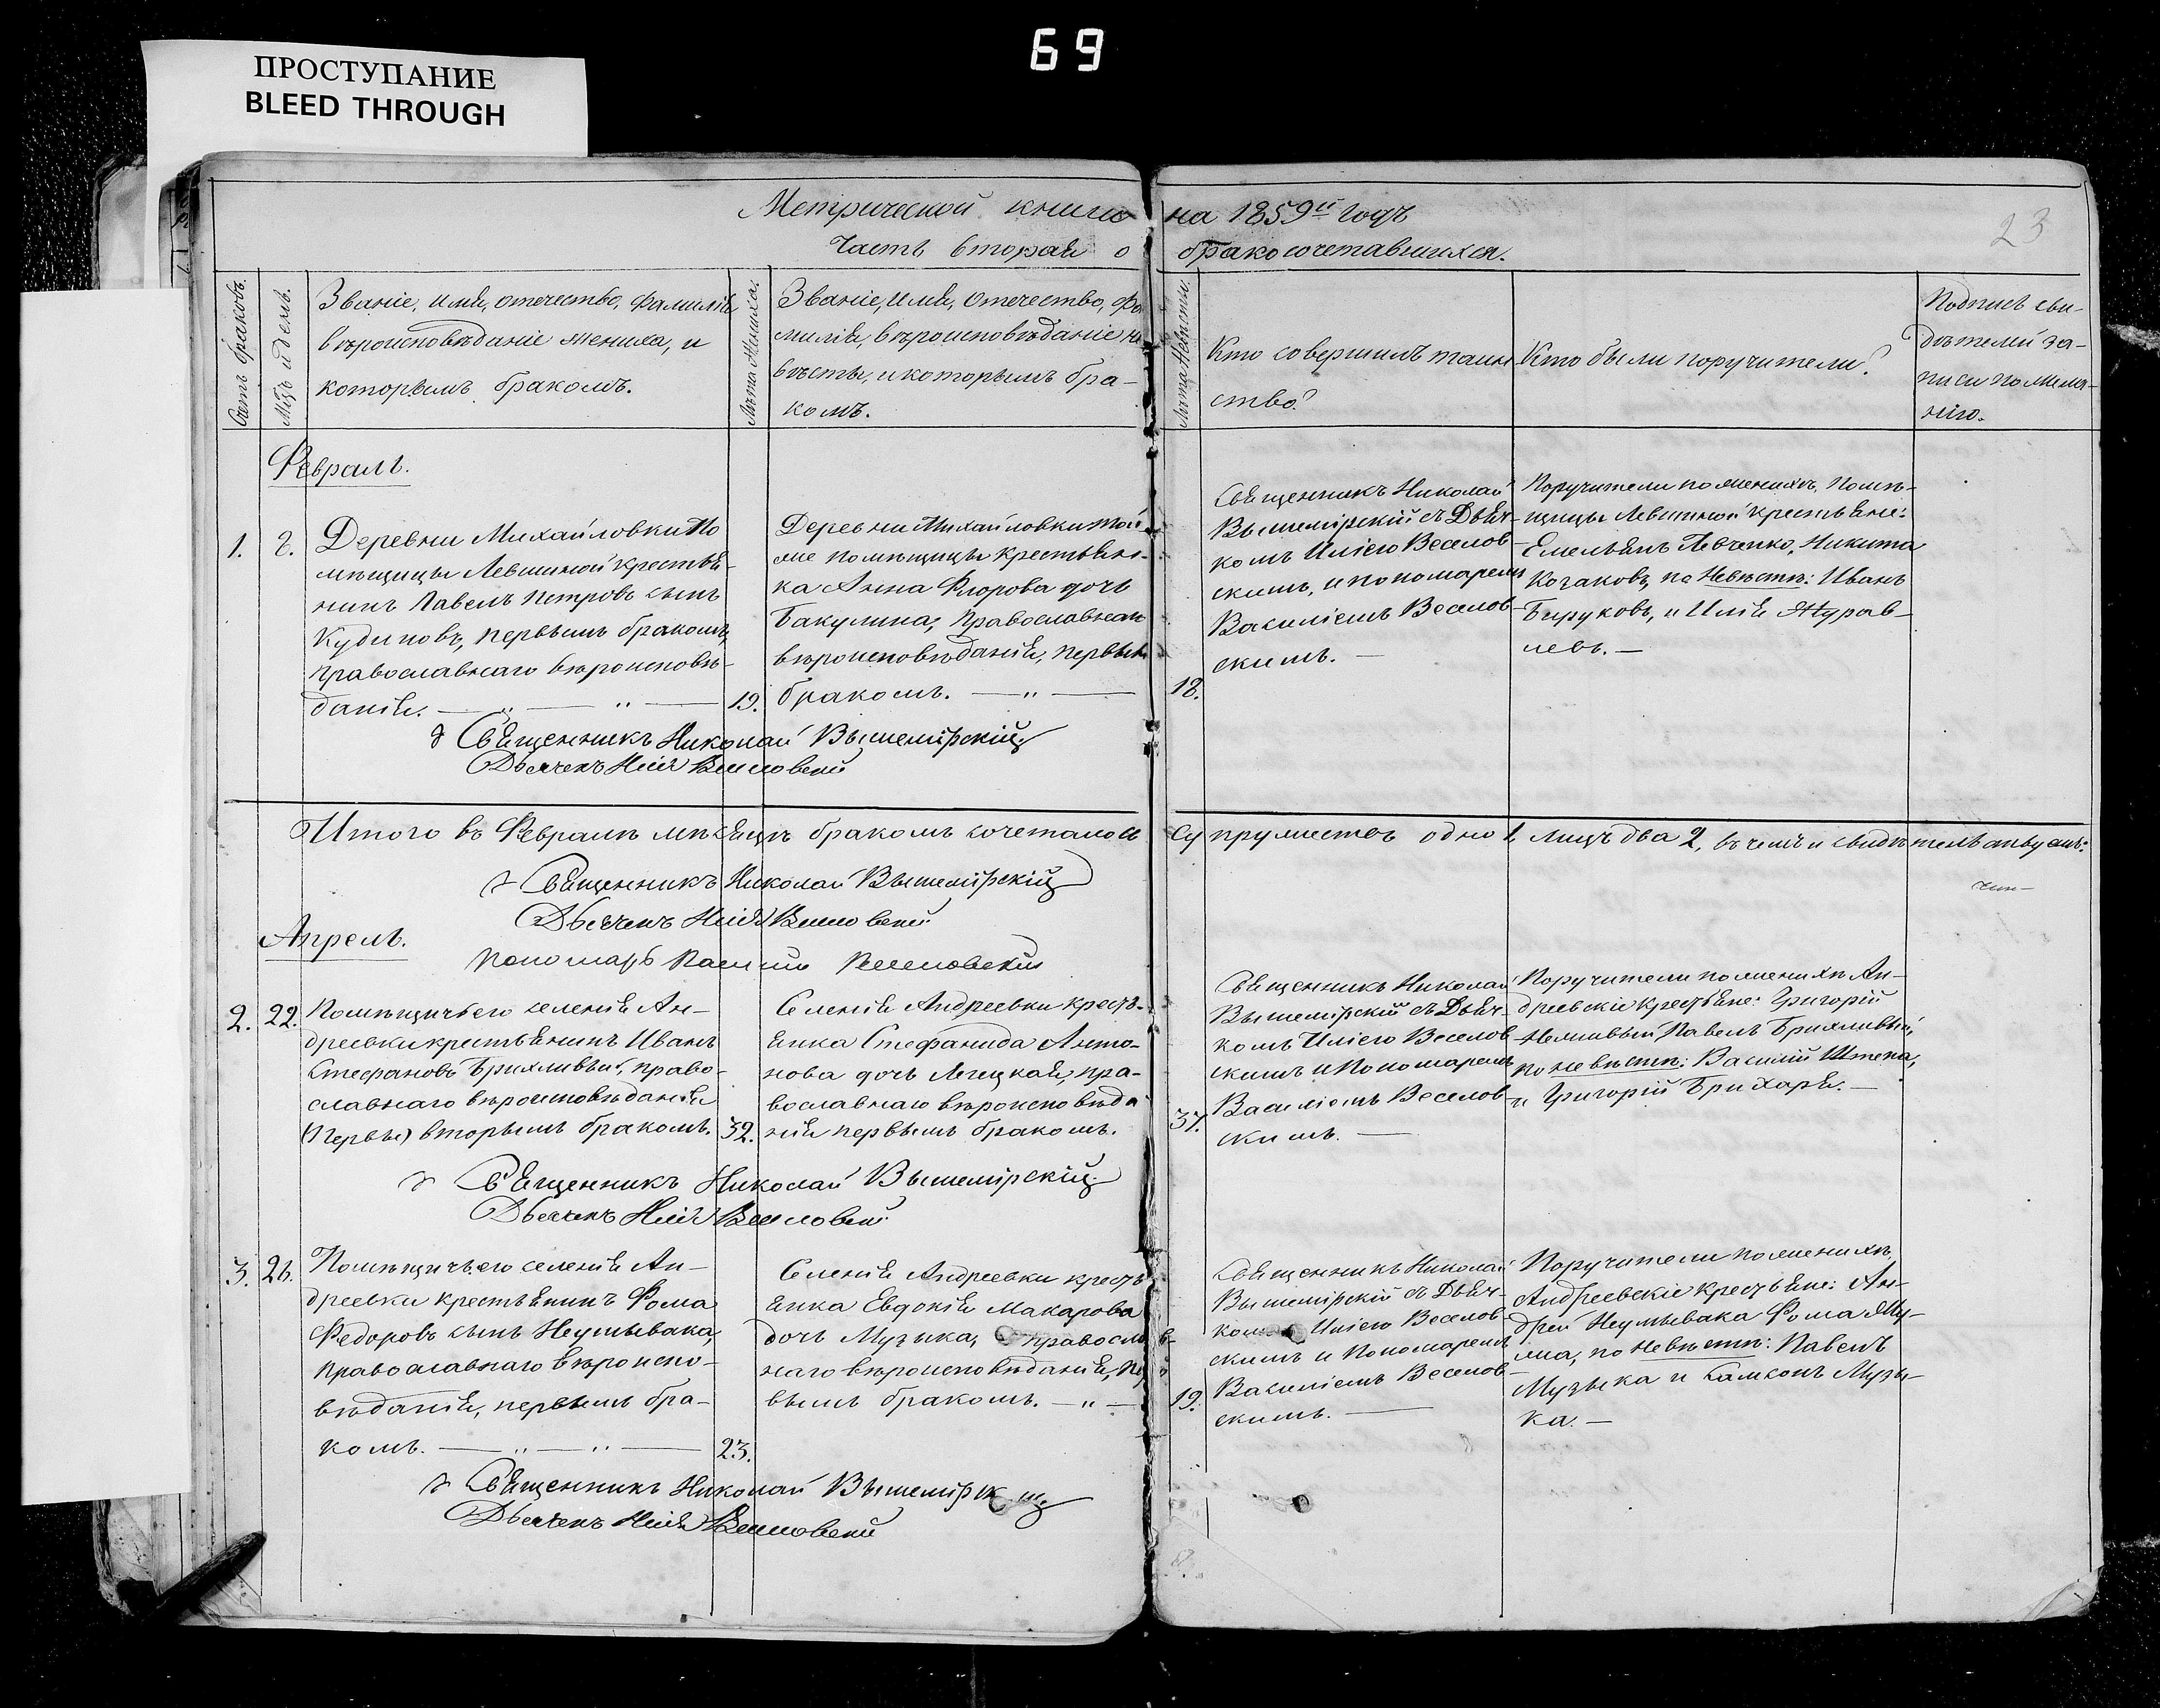 69
ПРОСТУПАНИЕ
BLEED THROUGH
Метрической книги на 1859й годъ
23
Часть вторая о бракосочетавшихся.
Счетъ браковъ.
Мцъ и день.
Званіе, имя, отечество, фамилія
вѣроисповѣданіе жениха, и
которымъ бракомъ.
Лѣта Жениха.
Званіе, имя, Отечество, фа
милія, вѣроисповѣданіе не
вѣсты, и которымъ бра-
комъ.
Лѣта Невѣсты.
Кто совершилъ таин
ство?
Кто были поручители?
Подпись сви-
дѣтелей за-
писи по жела-
нію.
Февраль.
1.
Деревни Михайловки По
мѣщицы Левшиной крестья-
нинъ Павелъ Петровъ сынъ
Кудиновъ, первымъ бракомъ,
православнаго вѣроисповѣ-
данія.
19.
Деревни Михайловки той
же помѣщицы крестьян-
ка Анна Флорова дочь
Бакулина, Православнаго
вѣроисповѣданія, первымъ
бракомъ.
18.
Священникъ Николай
Вышемірскій съ Дьяч-
комъ Иліею Веселов-
скимъ, и пономаремъ
Василіемъ Веселов-
скимъ.
Поручители по женихѣ, Помѣ-
щицы Левшиной крестьяне:
Емельянъ Левченко, Никита
Козаковъ, по Невѣстѣ: Иванъ
Бируковъ, и Илія Журав-
левъ.
Священникъ Николай Вышемірскій
Дьячекъ Илія Веселовскій
Итого въ Февралѣ мѣсяцѣ бракомъ сочеталось Супружествъ одно 1, лицъ два 2, въ чемъ и свидѣтельствуемъ:
Священникъ Николай Вышемірскій
Дьячекъ Илія Веселовскій
Пономарь Василій Веселовскій
Апрель.
2.
22.
Помѣщичьего селенія Ан-
дреевки крестьянинъ Иванъ
Стефановъ Брихливый, право-
славнаго вѣроисповѣданія
(первы) вторымъ бракомъ.
32.
Селенія Андреевки кресть-
янка Стефанида Анто-
нова дочь Легцкая, пра-
вославнаго вѣроисповѣда
нія первымъ бракомъ.
37.
Священникъ Николай
Вышемірскій съ Дьяч-
комъ Иліею Веселов-
скимъ и Пономаремъ
Василіемъ Веселов-
скимъ.
Поручители по женихѣ Ан-
дреевскіе крестьяне: Григорій
Немивый, Павелъ Брихливый,
по невѣстѣ: Василій Штепа,
и Григорій Брихаря.
Священникъ Николай Вышемірскій
Дьячекъ Илія Веселовскій
3.
26.
Помѣщичьего селенія Ан-
дреевки крестьянинъ Фома
Федоровъ сынъ Неумывака,
православнаго вѣроиспо-
вѣданія, первымъ бра-
комъ.
23.
Селенія Андреевки кресть
янка Евдокія Макарова
дочь Музыка, православ-
наго вѣроисповѣданія, пер
вымъ бракомъ.
19.
Священникъ Николай
Вышемірскій съ Дьяч-
комъ Иліею Веселов
скимъ и Пономаремъ
Василіемъ Веселов-
скимъ.
Поручители по женихѣ,
Андреевскіе крестьяне: Ан-
дрей Неумывака Фома Яку-
ма, по Невѣстѣ: Павелъ
Музыка и Самсонъ Музы-
ка.
Священникъ Николай Вышемірскій
Дьячекъ Илія Веселовскій